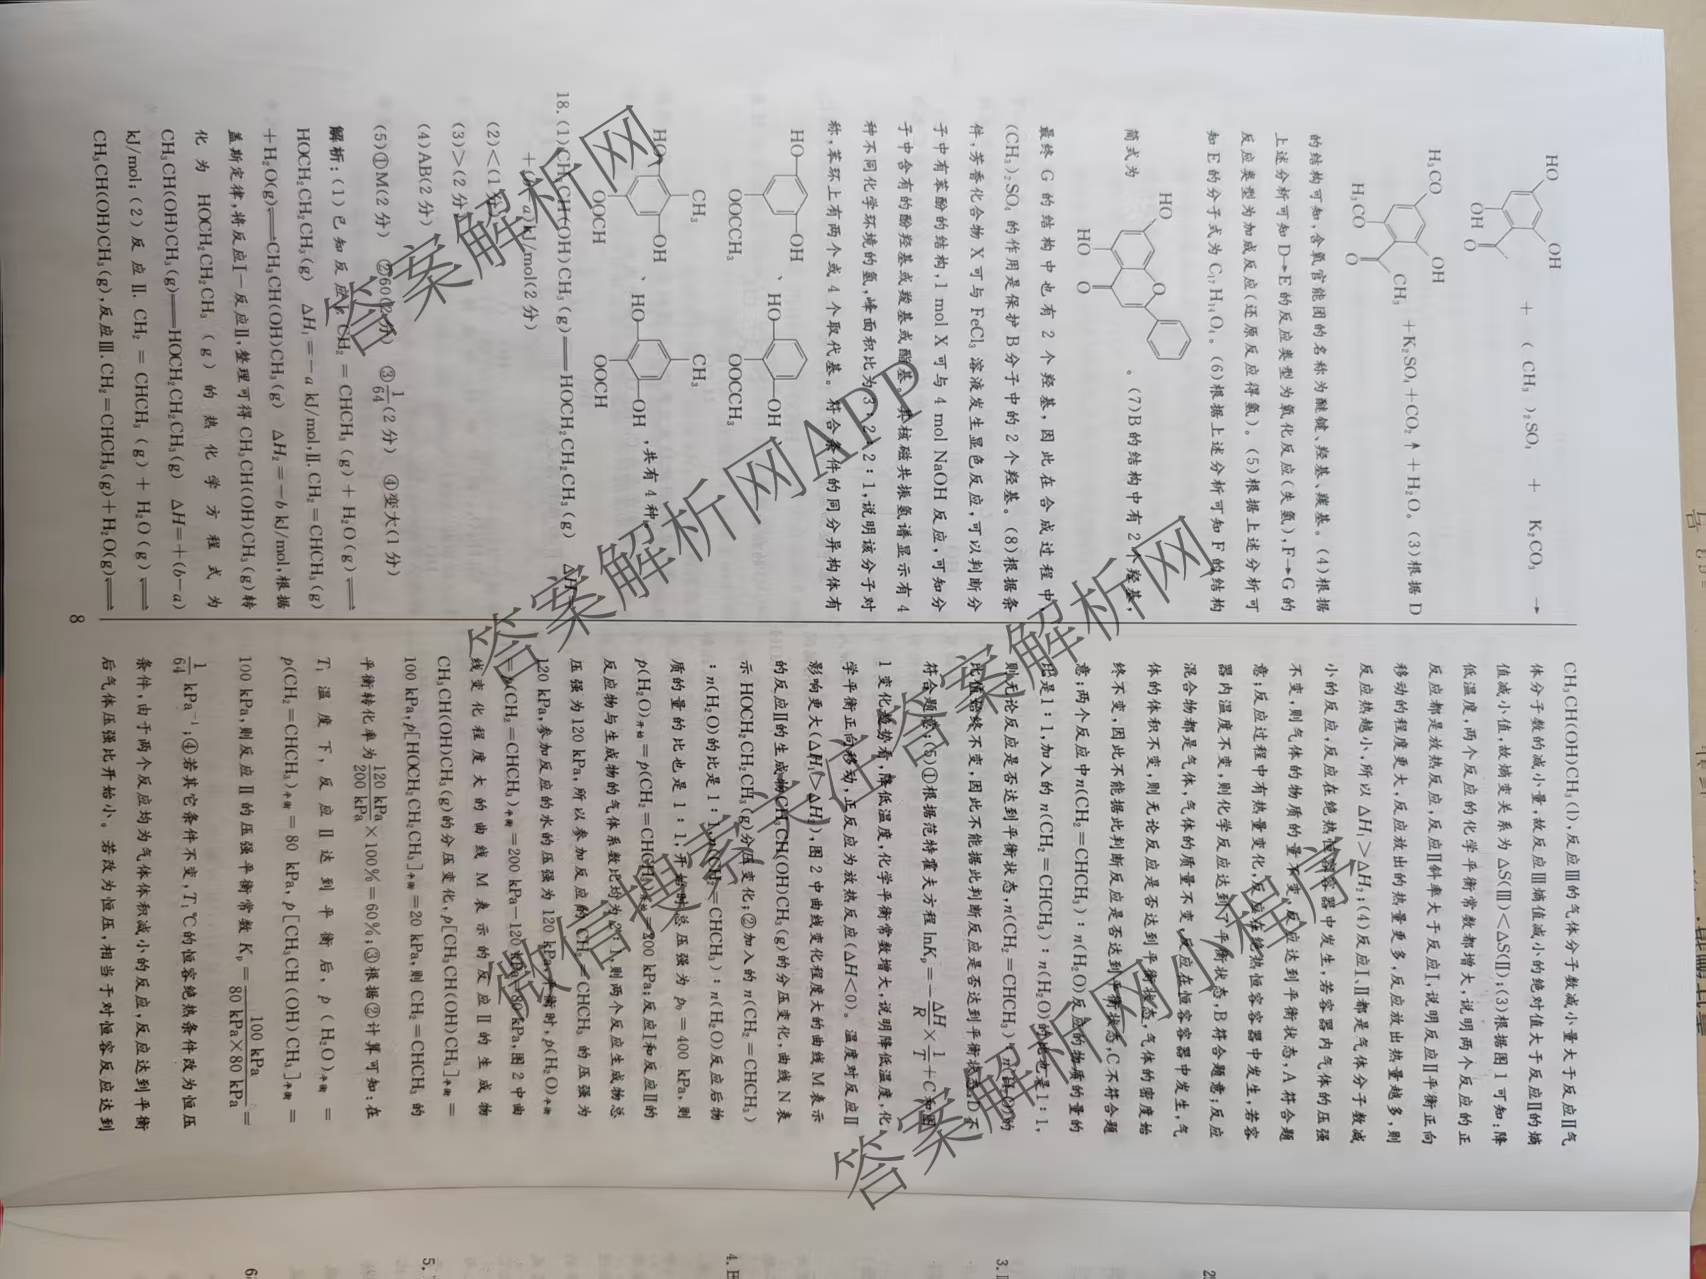 HO
OH
OH O
+ ( CH₃ )₂SO₄ + K₂CO₃ →
H₃CO
OH
CH₃
H₃CO
O
+K₂SO₄+CO₂↑+H₂O。(3)根据 D
的结构可知,含氧官能团的名称为醚键、羟基、羰基。(4)根据
上述分析可知 D→E 的反应类型为氧化反应(失氢),F→G 的
反应类型为加成反应(还原反应得氢)。(5)根据上述分析可
知 E 的分子式为 C₁₇H₁₄O₄。(6)根据上述分析可知 F 的结构
HO
O
HO
O
简式为
。(7)B 的结构中有 2 个羟基,
最终 G 的结构中也有 2 个羟基,因此在合成过程中,
(CH₃)₂SO₄ 的作用是保护 B 分子中的 2 个羟基。(8)根据条
件,芳香化合物 X 可与 FeCl₃ 溶液发生显色反应,可以判断分
子中有苯酚的结构,1 mol X 可与 4 mol NaOH 反应,可知分
子中含有的酚羟基或羧基或酯基。其核磁共振氢谱显示有 4
种不同化学环境的氢,峰面积比为 3∶2∶2∶1,说明该分子对
称,苯环上有两个或 4 个取代基。符合条件的同分异构体有
HO
OH
OOCCH₃
、
HO
OH
OOCCH₃
CH₃
HO
OH
OOCH
、
CH₃
HO
OH
OOCH
,共有 4 种。
18. (1)CH₃CH(OH)CH₃(g)══HOCH₂CH₂CH₃(g) ΔH=
+(b−a)kJ/mol(2 分)
(2)<(1 分)
(3)>(2 分)
(4)AB(2 分)
(5)①M(2 分) ②60(2 分) ③1/64(2 分) ④变大(1 分)
解析:(1)已知反应 Ⅰ. CH₂ = CHCH₃ (g) + H₂O (g) ⇌
HOCH₂CH₂CH₃(g) ΔH₁=−a kJ/mol,Ⅱ. CH₂=CHCH₃(g)
+H₂O(g)⇌CH₃CH(OH)CH₃(g) ΔH₂=−b kJ/mol,根据
盖斯定律,将反应Ⅰ−反应Ⅱ,整理可得 CH₃CH(OH)CH₃(g)转
化 为 HOCH₂CH₂CH₃ (g) 的 热 化 学 方 程 式 为
CH₃CH(OH)CH₃(g)══HOCH₂CH₂CH₃(g) ΔH=+(b−a)
kJ/mol;(2)反应Ⅱ. CH₂ = CHCH₃ (g) + H₂O (g) ⇌
CH₃CH(OH)CH₃(g),反应Ⅲ. CH₂=CHCH₃(g)+H₂O(g)⇌
8
CH₃CH(OH)CH₃(l),反应Ⅲ的气体分子数减小量大于反应Ⅱ气
体分子数的减小量,故反应Ⅲ熵值减小的绝对值大于反应Ⅱ的熵
值减小值,故熵变关系为 ΔS(Ⅲ)<ΔS(Ⅱ);(3)根据图 1 可知:降
低温度,两个反应的化学平衡常数都增大,说明两个反应的正
反应都是放热反应,反应Ⅱ斜率大于反应Ⅰ,说明反应Ⅱ平衡正向
移动的程度更大,反应放出的热量更多,反应放出热量越多,则
反应热越小,所以 ΔH₁>ΔH₂;(4)反应Ⅰ、Ⅱ都是气体分子数减
小的反应,反应在绝热恒容容器中发生,若容器内气体的压强
不变,则气体的物质的量不变,反应达到平衡状态,A 符合题
意;反应过程中有热量变化,反应在绝热恒容容器中发生,若容
器内温度不变,则化学反应达到了平衡状态,B 符合题意;反应
混合物都是气体,气体的质量不变,反应在恒容容器中发生,气
体的体积不变,则无论反应是否达到平衡状态,气体的密度始
终不变,因此不能据此判断反应是否达到平衡状态,C 不符合题
意;两个反应中 n(CH₂=CHCH₃)∶n(H₂O)反应的物质的量的
比是 1∶1,加入的 n(CH₂=CHCH₃)∶n(H₂O)的比也是 1∶1,
则无论反应是否达到平衡状态,n(CH₂=CHCH₃)∶n(H₂O)的
比值始终不变,因此不能据此判断反应是否达到平衡状态,D 不
符合题意;(5)①根据范特霍夫方程 lnKₚ=−ΔH/R×1/T+C 和图
1 变化趋势看,降低温度,化学平衡常数增大,说明降低温度,化
学平衡正向移动,正反应为放热反应(ΔH<0)。温度对反应Ⅱ
影响更大(ΔH₁>ΔH₂),图 2 中曲线变化程度大的曲线 M 表示
的反应Ⅱ的生成物 CH₃CH(OH)CH₃(g)的分压变化,曲线 N 表
示 HOCH₂CH₂CH₃(g)分压变化;②加入的 n(CH₂=CHCH₃)
∶n(H₂O)的比是 1∶1,n(CH₂=CHCH₃)∶n(H₂O)反应后物
质的量的比也是 1∶1,开始时总压强为 p₀=400 kPa,则
p(H₂O)开始=p(CH₂=CHCH₃)开始=200 kPa;反应Ⅰ和反应Ⅱ的
反应物与生成物的气体系数比均为 2∶1,则两个反应生成物总
压强为 120 kPa,所以参加反应的 CH₂=CHCH₃ 的压强为
120 kPa,参加反应的水的压强为 120 kPa,平衡时,p(H₂O)平衡
=p(CH₂=CHCH₃)平衡=200 kPa−120 kPa=80 kPa,图 2 中曲
线 变 化 程 度 大 的 曲 线 M 表 示 的 反 应 Ⅱ 的 生 成 物
CH₃CH(OH)CH₃(g)的分压变化,p[CH₃CH(OH)CH₃]平衡=
100 kPa,p[HOCH₂CH₂CH₃]平衡=20 kPa,则 CH₂=CHCH₃ 的
平衡转化率为120 kPa/200 kPa×100%=60%;③根据②计算可知:在
T₁ 温 度 下, 反 应 Ⅱ 达 到 平 衡 后, p ( H₂O )平衡 =
p(CH₂=CHCH₃)平衡= 80 kPa, p [CH₃CH (OH) CH₃]平衡 =
100 kPa,则反应Ⅱ的压强平衡常数 Kₚ=100 kPa/(80 kPa×80 kPa)=
1/64 kPa⁻¹;④若其它条件不变,T₁℃的恒容绝热条件改为恒压
条件,由于两个反应均为气体体积减小的反应,反应达到平衡
后气体压强比开始小。若改为恒压,相当于对恒容反应达到
答案解析网
答案解析网APP
答案解析网
微信搜索关注答案解析网小程序
答案解析网
3.
5.